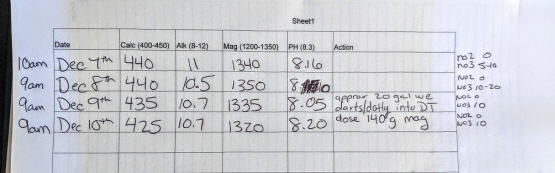 Sheet1
Date Calc (400-450) Alk (8-12) Mag (1200-1350) PH (8.3) Action
10am Dec 7th 440 11 1340 8.16 no2 0
no3 5-10
9am Dec 8th 440 10.5 1350 NO2 0
NO3 10-20
9am Dec 9th 435 10.7 1335 8.05 approx 20 gal we NO2 0
into DT NO3 10
9am Dec 10th 425 10.7 1320 8.20 dose 140g mag NO2 0
NO3 10